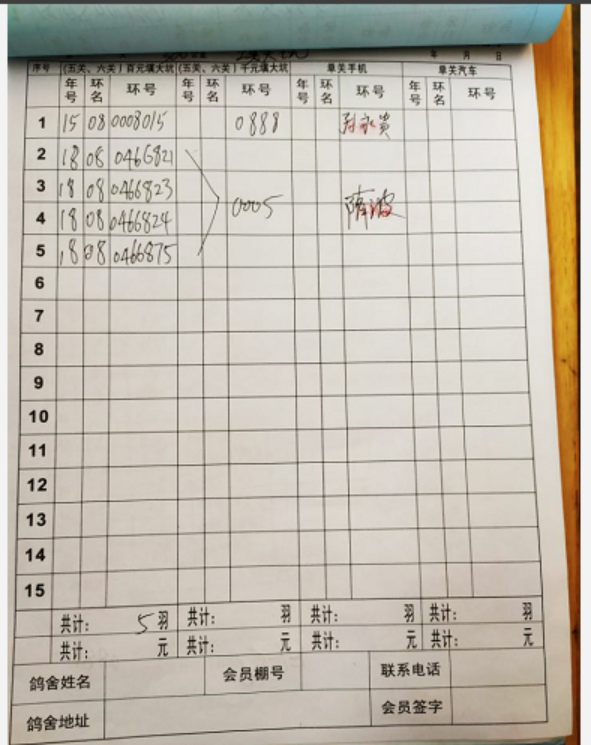 年 月 日
序号 (五关、六关)百元填大坑 (五关、六关)千元填大坑 单关手机 单关汽车
年号 环名 环号 年号 环名 环号 年号 环名 环号 年号 环名 环号
1 15 08 0008015 0888 孙永贵
2 18 08 0466821
3 18 08 0466823 0005 陈波
4 18 08 0466824
5 18 08 0466875
6
7
8
9
10
11
12
13
14
15
共计: 5羽 共计: 羽 共计: 羽 共计: 羽
共计: 元 共计: 元 共计: 元 共计: 元
鸽舍姓名 会员棚号 联系电话
鸽舍地址 会员签字